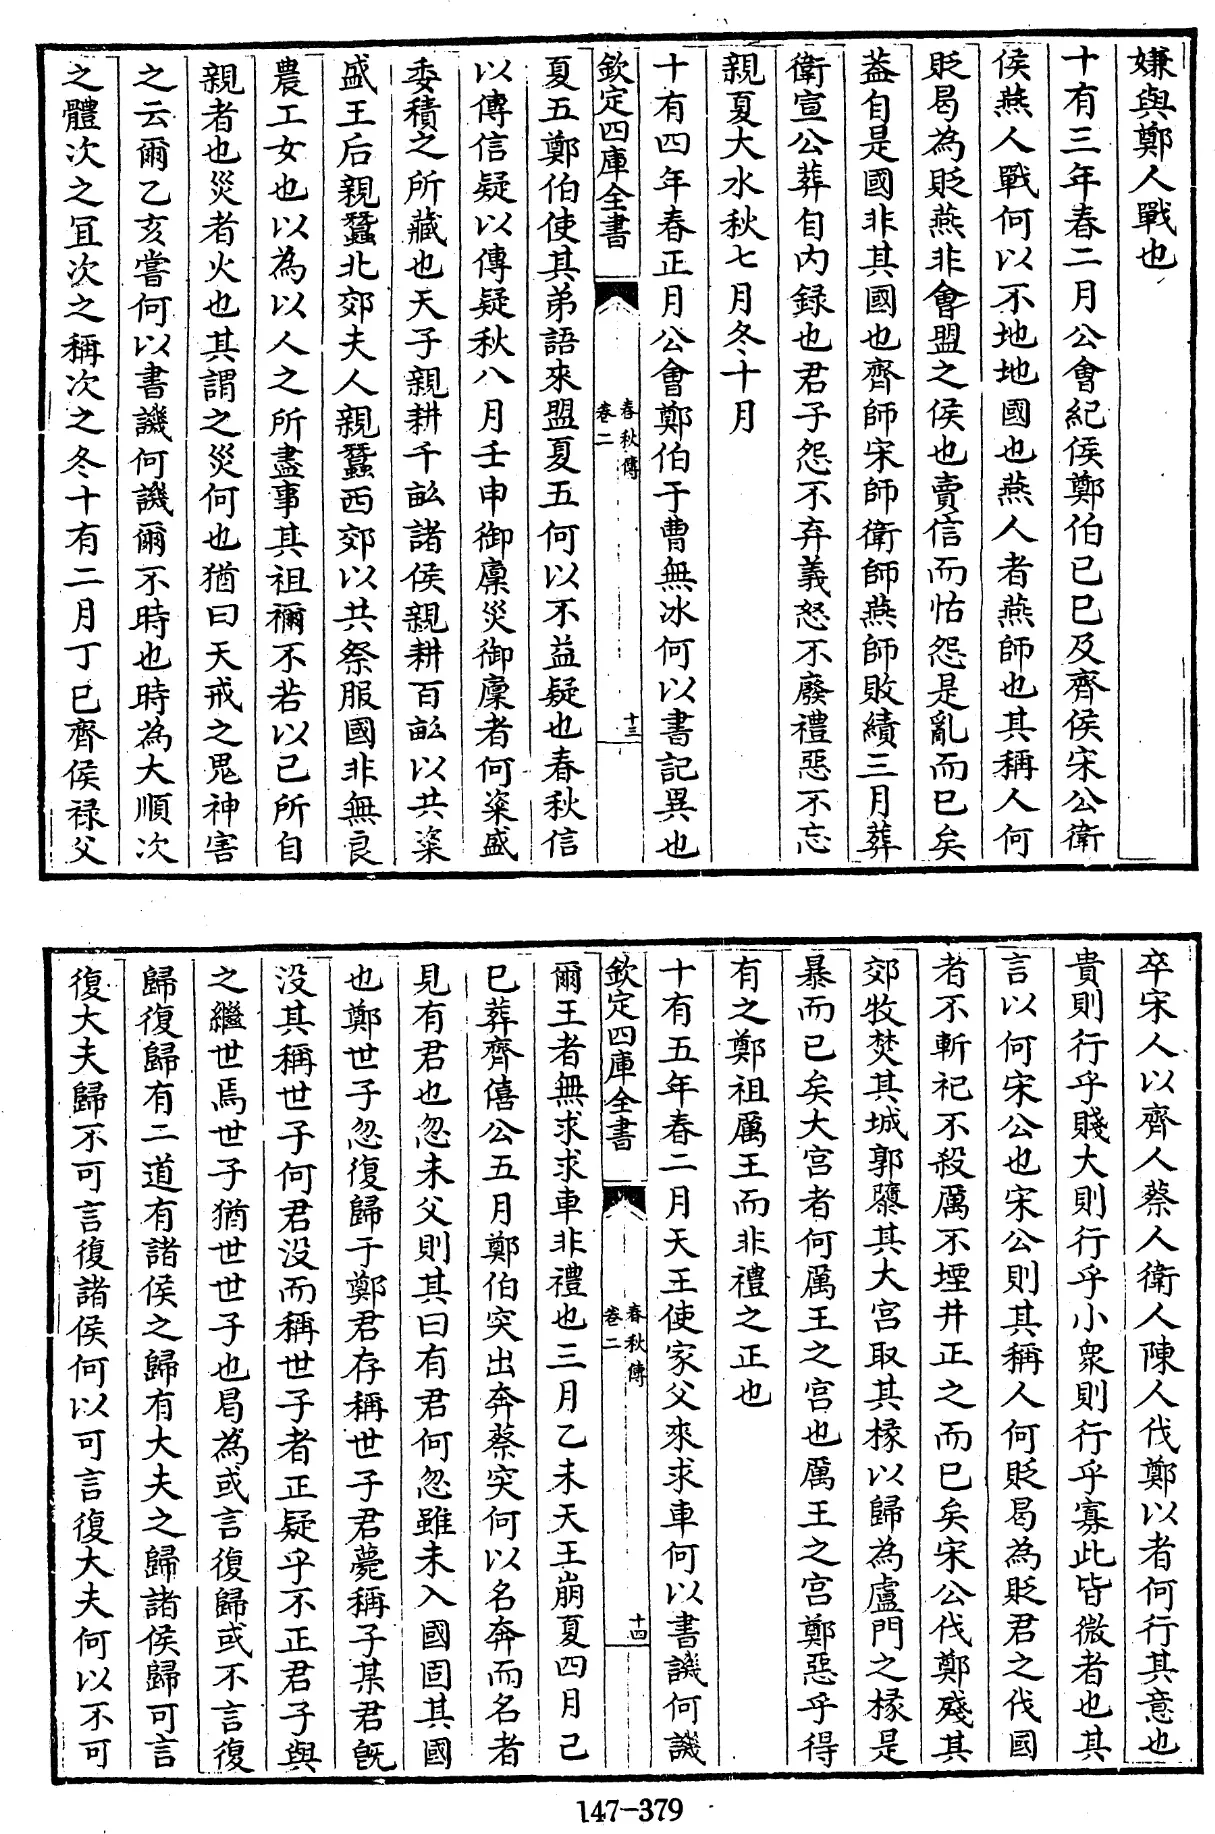 嫌與鄭人戰也
十有三年春二月公會紀侯鄭伯己巳及齊侯宋公衛
侯燕人戰何以不地地國也燕人者燕師也其稱人何
貶曷為貶燕非會盟之侯也賣信而怙怨是亂而已矣
葢自是國非其國也齊師宋師衛師燕師敗績三月葬
衛宣公葬自内録也君子怨不弃義怒不廢禮惡不忘
親夏大水秋七月冬十月
十有四年春正月公會鄭伯于曹無冰何以書記異也
欽定四庫全書
春秋傳
卷二
十三
夏五鄭伯使其弟語來盟夏五何以不益疑也春秋信
以傳信疑以傳疑秋八月壬申御廩災御廩者何粢盛
委積之所藏也天子親耕千畝諸侯親耕百畝以共粢
盛王后親蠶北郊夫人親蠶西郊以共祭服國非無良
農工女也以為以人之所盡事其祖禰不若以己所自
親者也災者火也其謂之災何也猶曰天戒之鬼神害
之云爾乙亥嘗何以書譏何譏爾不時也時為大順次
之體次之宜次之稱次之冬十有二月丁巳齊侯禄父
卒宋人以齊人蔡人衛人陳人伐鄭以者何行其意也
貴則行乎賤大則行乎小衆則行乎寡此皆微者也其
言以何宋公也宋公則其稱人何貶曷為貶君之伐國
者不斬祀不殺厲不堙井正之而已矣宋公伐鄭殘其
郊牧焚其城郭隳其大宫取其椽以歸為盧門之椽是
暴而已矣大宫者何厲王之宫也厲王之宫鄭惡乎得
有之鄭祖厲王而非禮之正也
十有五年春二月天王使家父來求車何以書譏何譏
欽定四庫全書
春秋傳
卷二
十四
爾王者無求求車非禮也三月乙未天王崩夏四月己
巳葬齊僖公五月鄭伯突出奔蔡突何以名奔而名者
見有君也忽未父則其曰有君何忽雖未入國固其國
也鄭世子忽復歸于鄭君存稱世子君薨稱子某君既
没其稱世子何君没而稱世子者正疑乎不正君子與
之繼世焉世子猶世世子也曷為或言復歸或不言復
歸復歸有二道有諸侯之歸有大夫之歸諸侯歸可言
復大夫歸不可言復諸侯何以可言復大夫何以不可
147-379